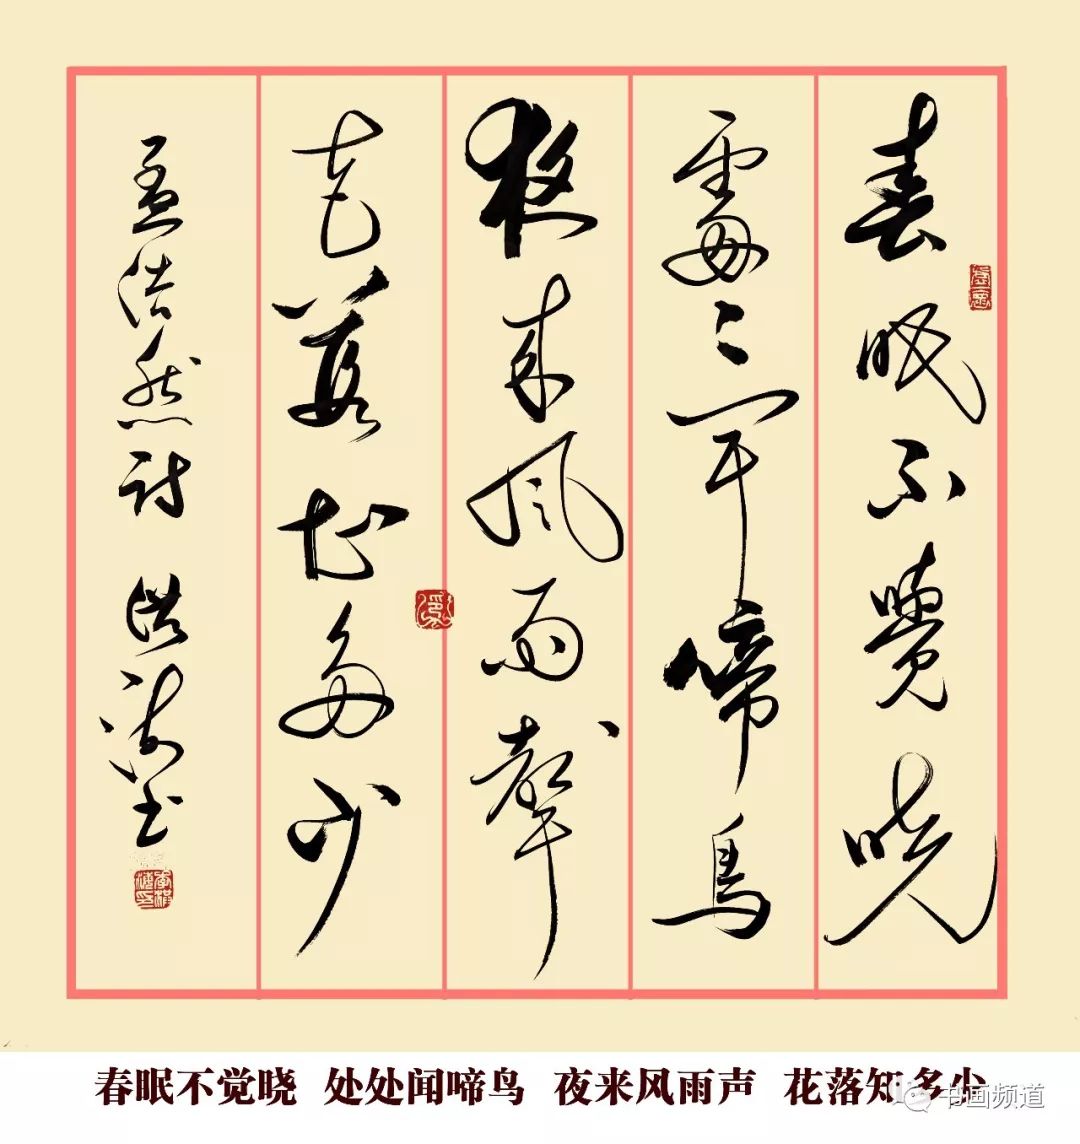 春眠不觉晓
处处闻啼鸟
夜来风雨声
花落知多少
孟浩然诗
春眠不觉晓 处处闻啼鸟 夜来风雨声 花落知多少
书画频道